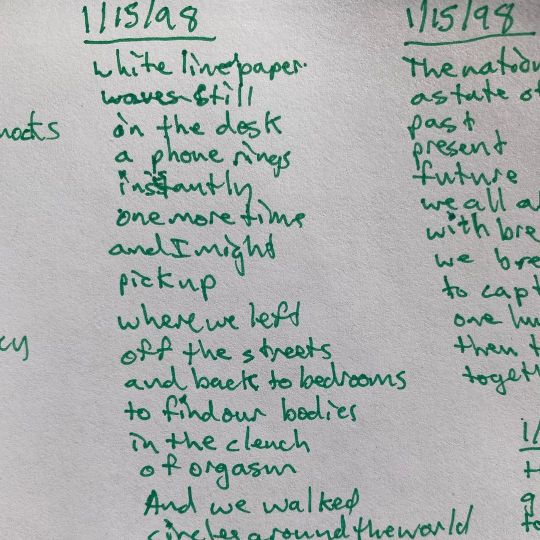 1/15/98
white line paper
waves still
on the desk
a phone rings
instantly
one more time
and I might
pick up
where we left
off the streets
and back to bedrooms
to find our bodies
in the clench
of orgasm
And we walked
circles around the world
1/15/98
The nation
a state of
past
present
future
we all
with
we
to
one
then